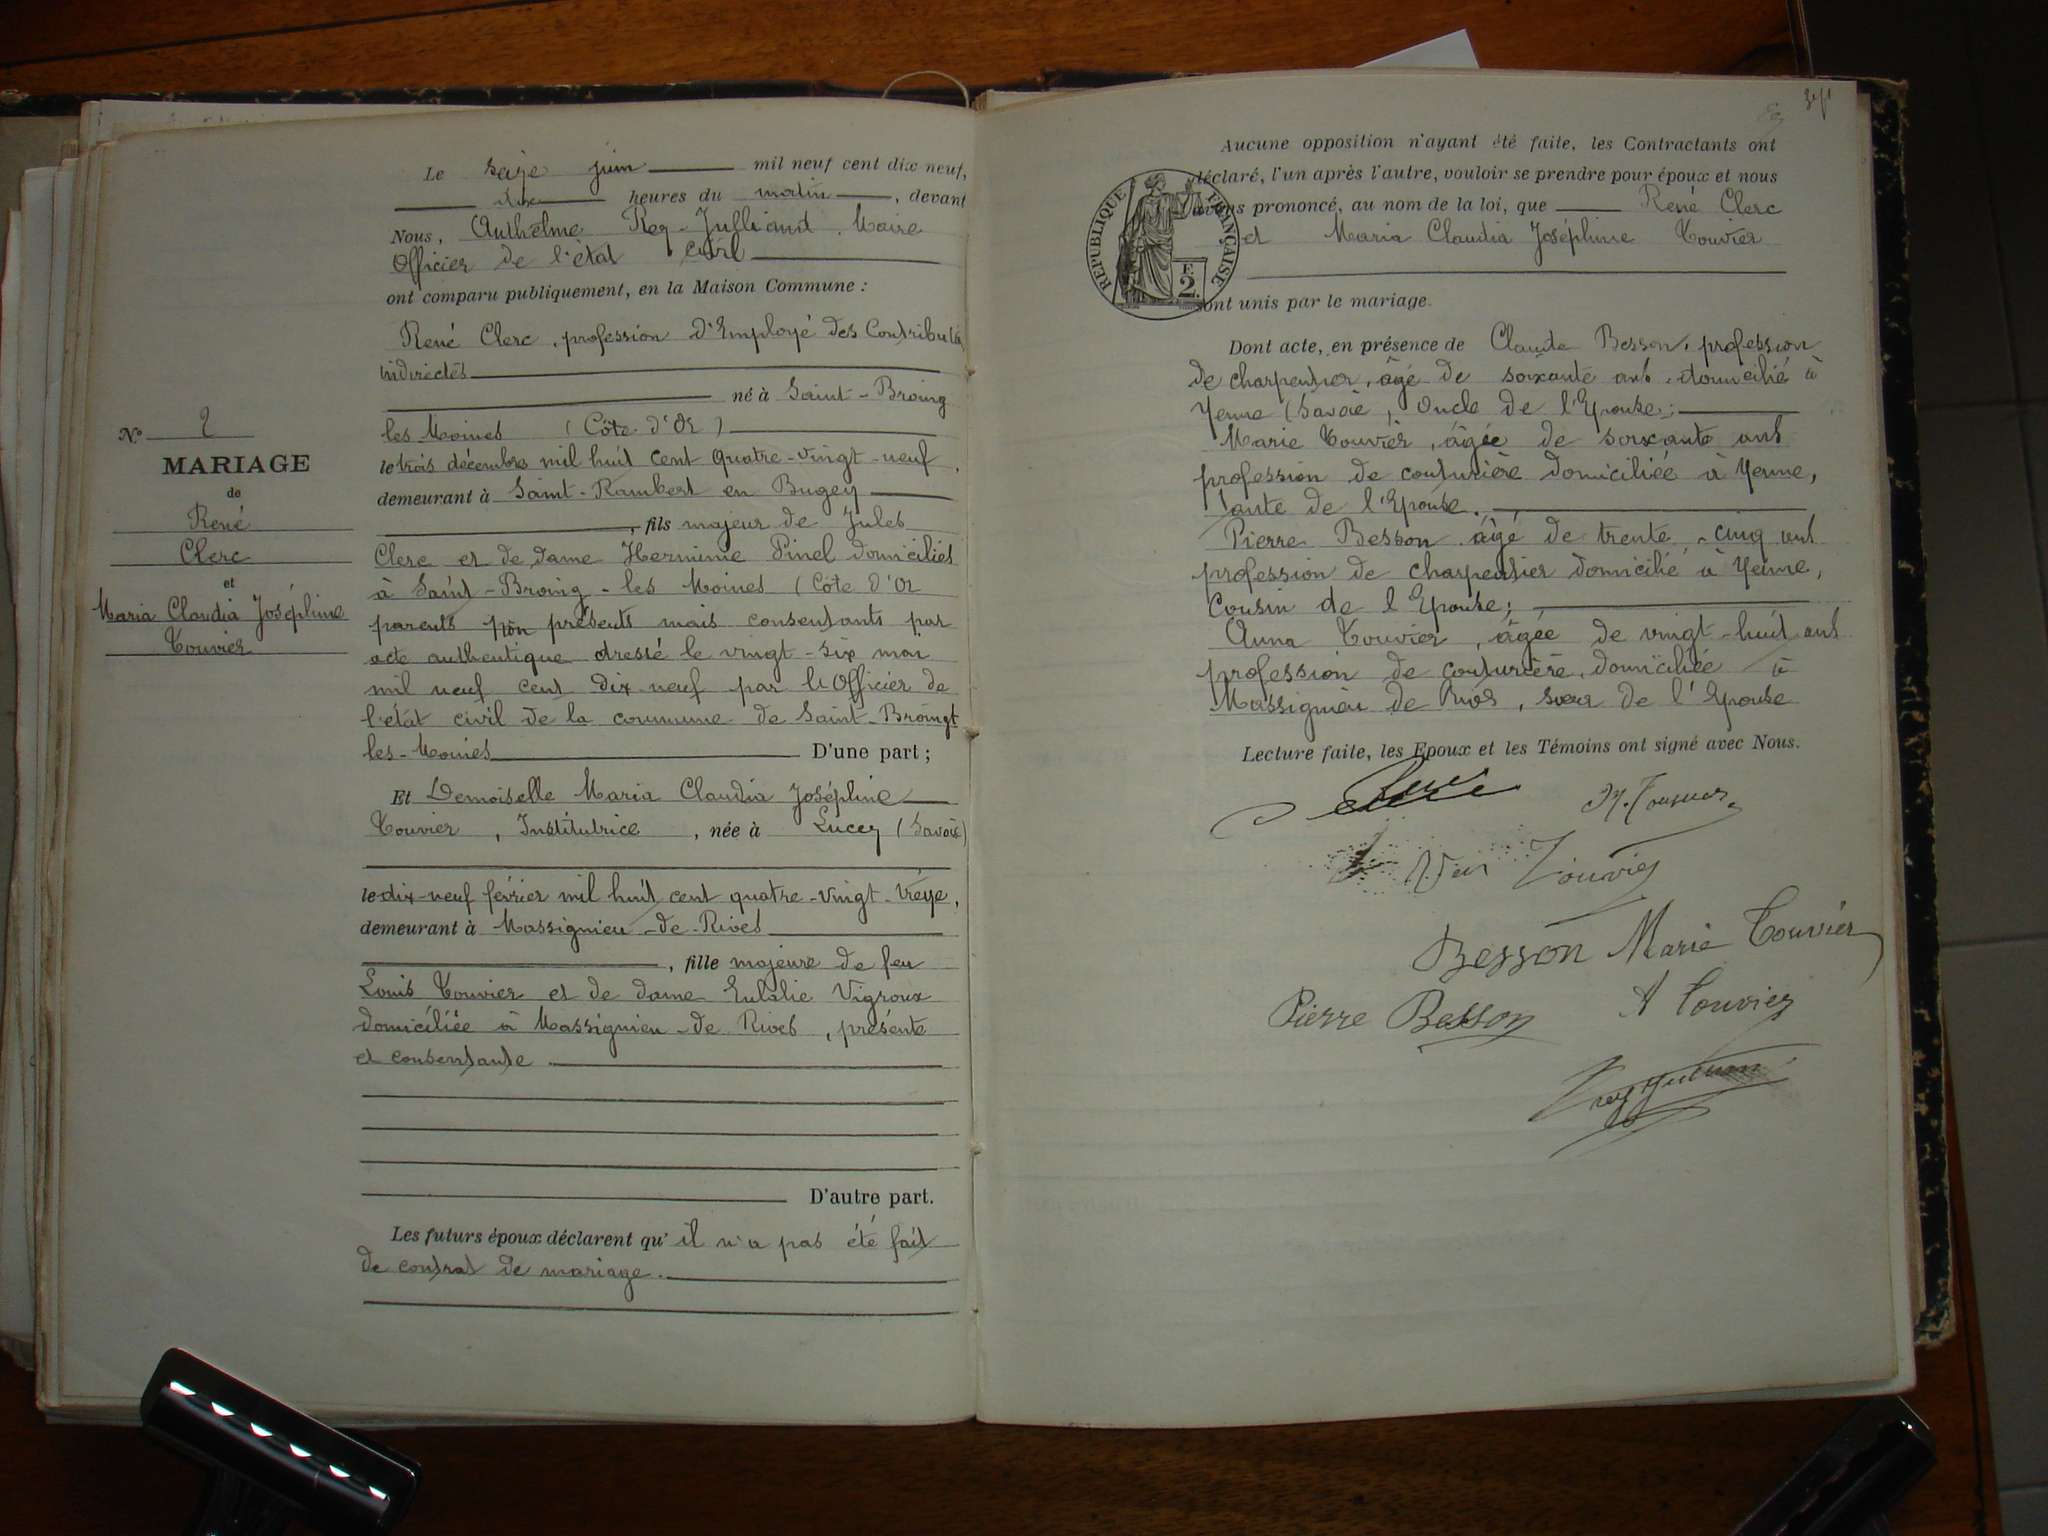 Nº 2
MARIAGE
de
René
Clerc
et
Maria Claudia Joséphine
Touvier
Le seize juin mil neuf cent dix neuf,
dix heures du matin, devant
Nous, Anthelme Rey-Julliand, Maire
Officier de l'état civil
ont comparu publiquement, en la Maison Commune :
René Clerc, profession d'Employé des Contributions
indirectes
né à Saint-Broing
les Moines (Côte d'Or)
le trois décembre mil huit cent quatre-vingt-neuf,
demeurant à Saint-Rambert en Bugey
, fils majeur de Jules
Clerc et de dame Herminie Pinel domiciliés
à Saint-Broing-les Moines (Côte d'Or
parents non présents mais consentants par
acte authentique dressé le vingt-six mai
mil neuf cent dix neuf par l'Officier de
l'état civil de la commune de Saint-Broingt
les-Moines D'une part ;
Et Demoiselle Maria Claudia Joséphine
Touvier, Institutrice, née à Lucey (Savoie)
le dix-neuf février mil huit cent quatre-vingt-treize,
demeurant à Massignieu-de-Rives
, fille majeure de feu
Louis Touvier et de dame Eulalie Vigroux
domiciliée à Massignieu-de Rives, présente
et consentante
D'autre part.
Les futurs époux déclarent qu'il n'a pas été fait
de contrat de mariage.
sept
Aucune opposition n'ayant été faite, les Contractants ont
déclaré, l'un après l'autre, vouloir se prendre pour époux et nous
avons prononcé, au nom de la loi, que René Clerc
et Maria Claudia Joséphine Touvier
RÉPUBLIQUE FRANÇAISE
F.
2.
sont unis par le mariage.
Dont acte, en présence de Claude Besson, profession
de charpentier, âgé de soixante ans, domicilié à
Yenne (Savoie, Oncle de l'Epouse;
Marie Touvier, âgée de soixante ans
profession de couturière domiciliée à Yenne,
tante de l'Epouse.
Pierre Besson âgé de trente-cinq ans
profession de charpentier domicilié à Yenne,
Cousin de l'Epouse;
Anna Touvier, âgée de vingt-huit ans
profession de couturière, domiciliée à
Massignieu de Rives, sœur de l'Epouse
Lecture faite, les Epoux et les Témoins ont signé avec Nous.
Clerc M. Touvier
Touvier
Besson Marie Touvier
Pierre Besson A Touvier
Rey Julliand